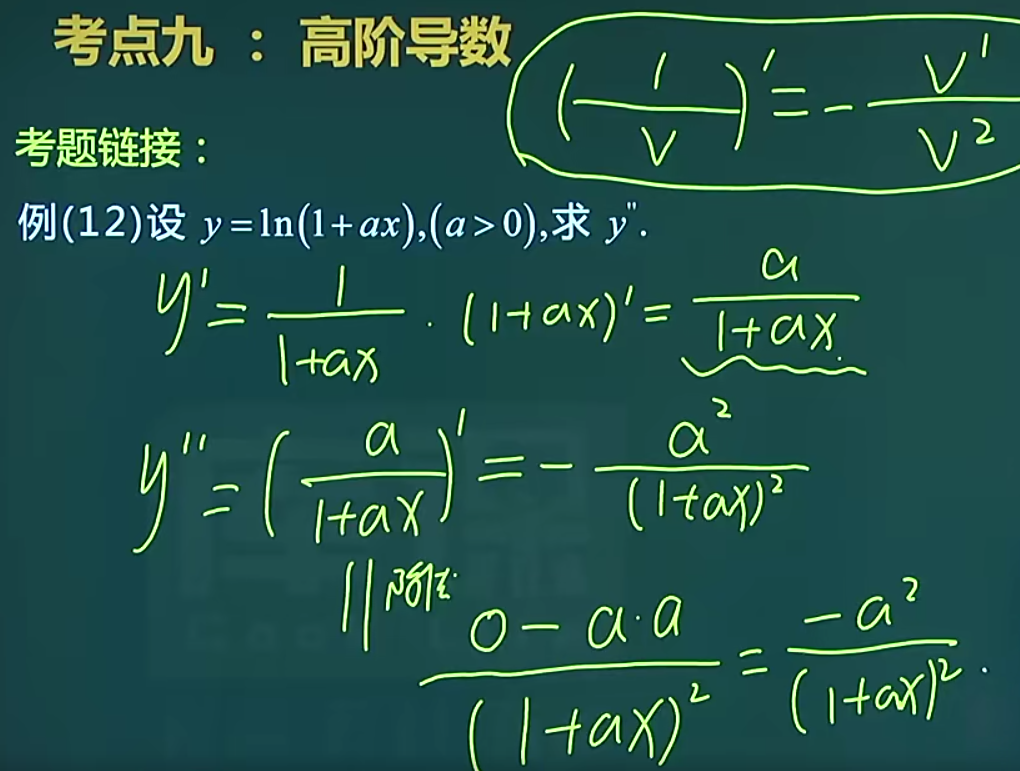 考点九 : 高阶导数
(1/V)' = - V'/V²
考题链接：
例(12)设 y=ln(1+ax),(a>0),求 y".
y' = 1/(1+ax) · (1+ax)' = a/(1+ax)
y'' = (a/(1+ax))' = - a²/(1+ax)²
(0-a·a)/(1+ax)² = -a²/(1+ax)².